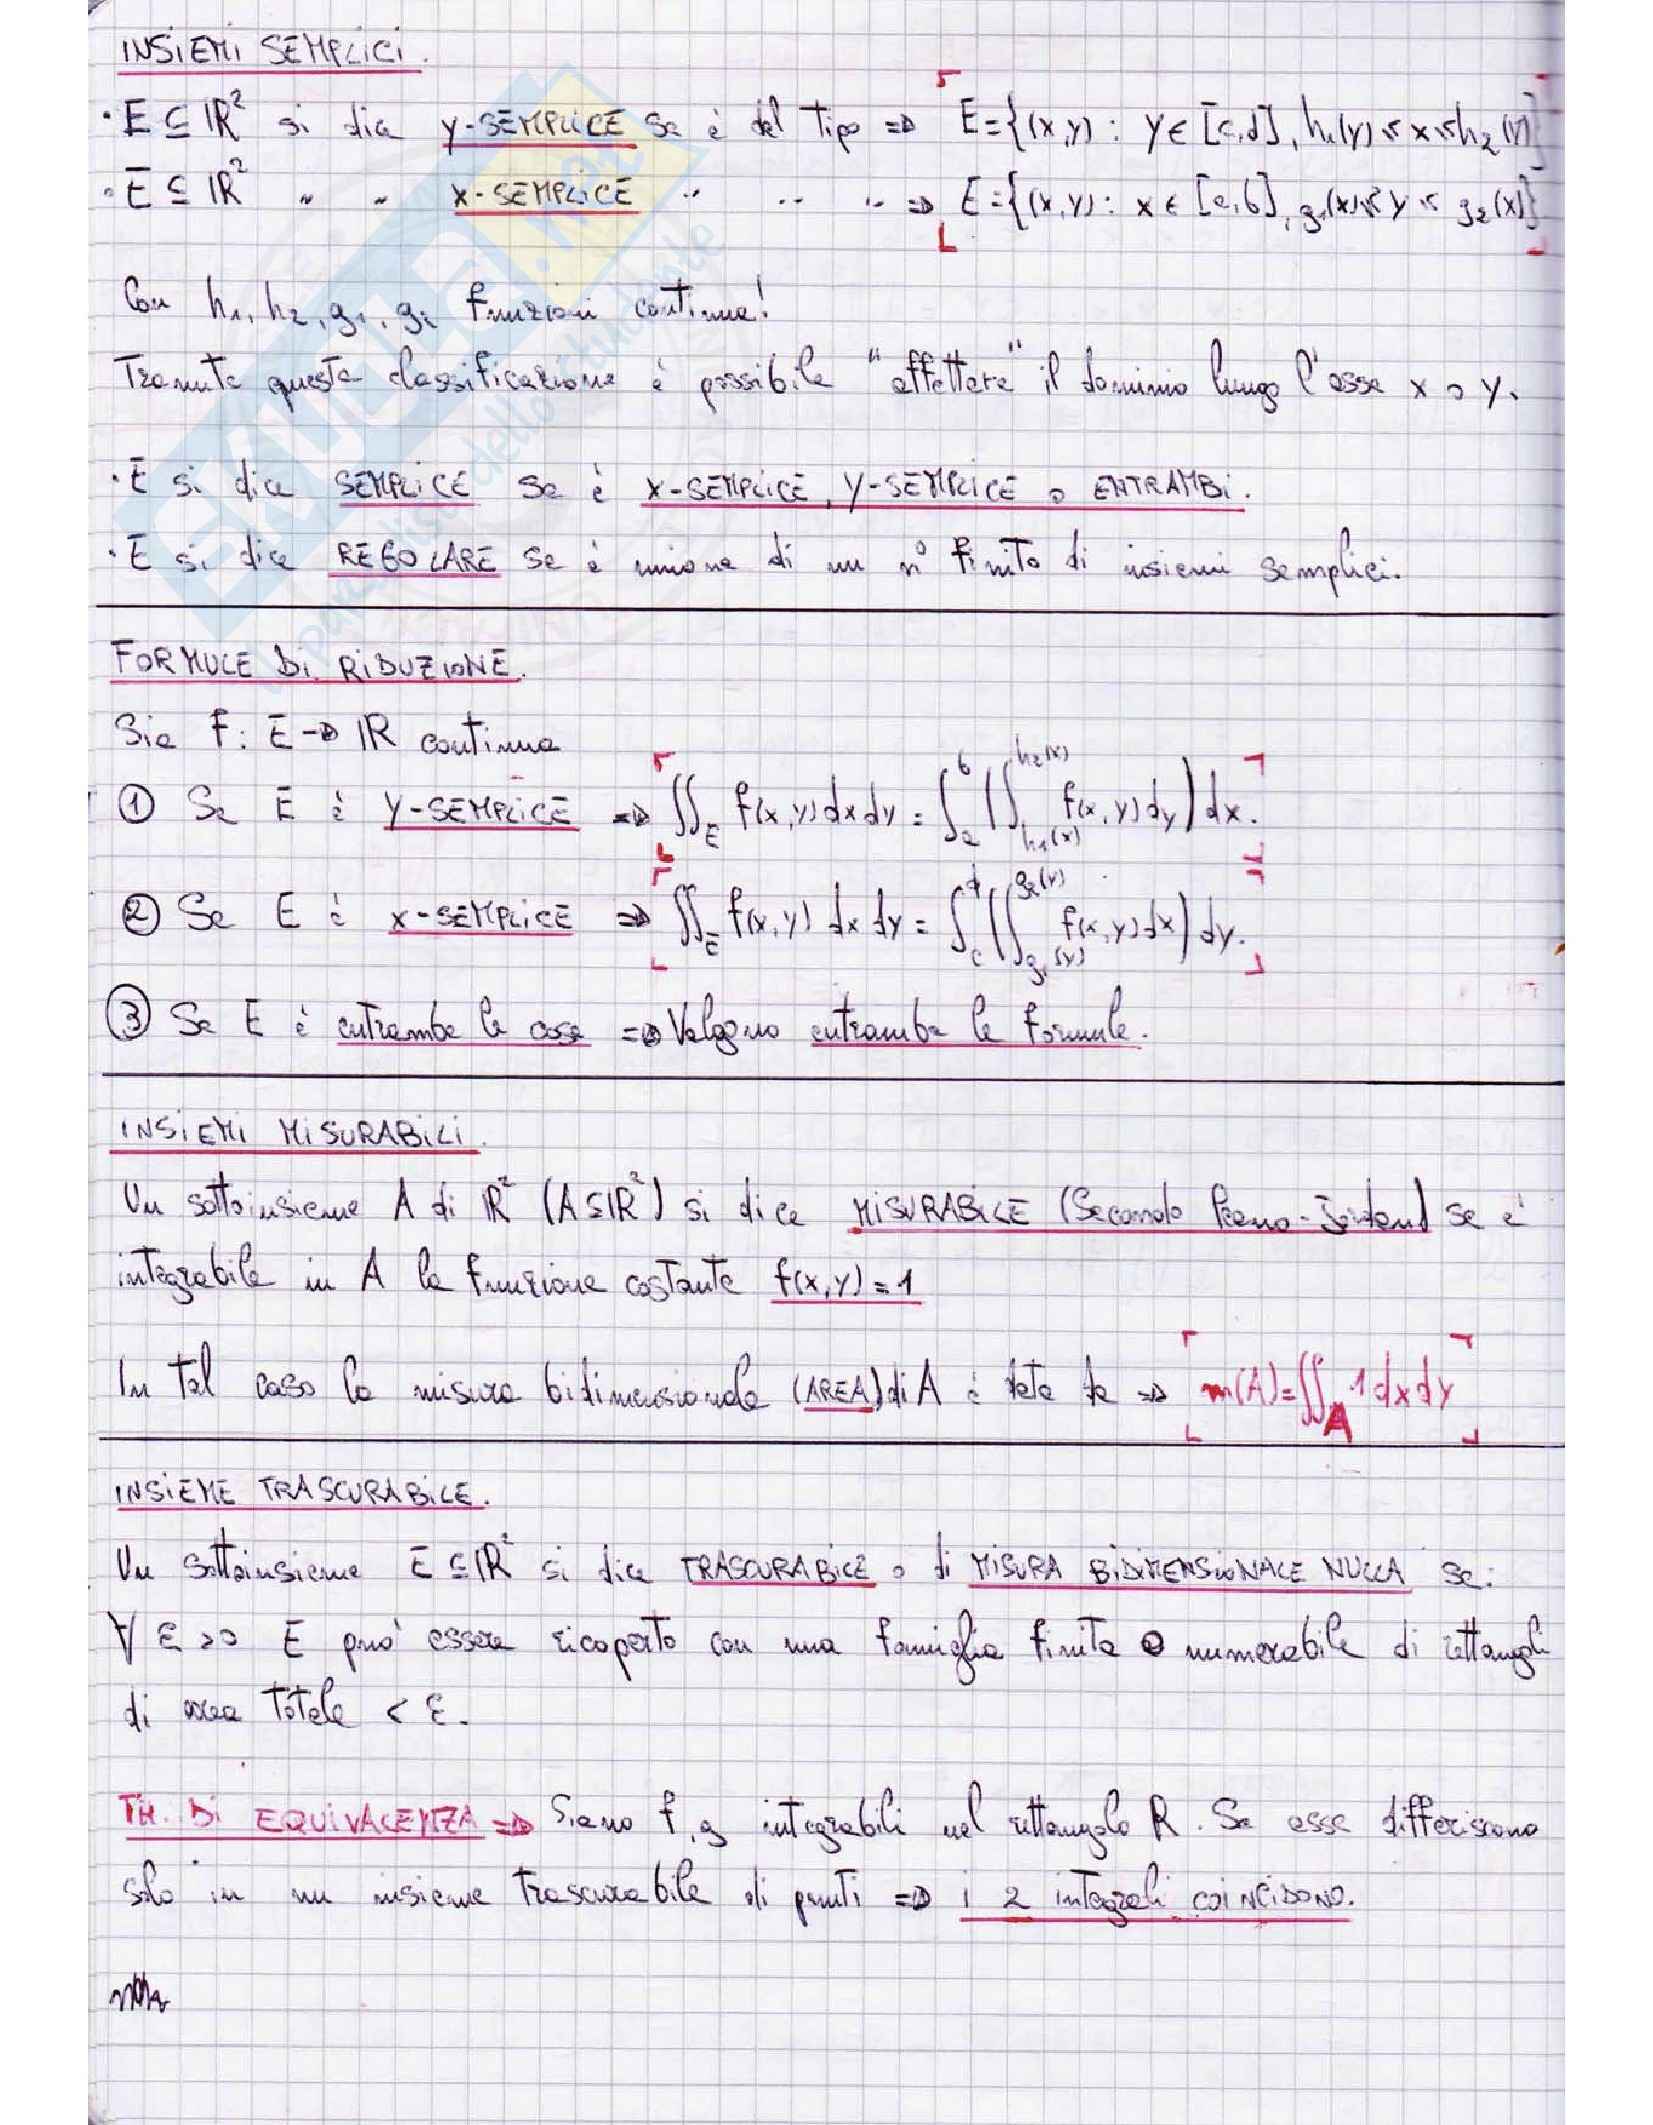 INSIEMI SEMPLICI.
· E ⊆ ℝ² si dice y-SEMPLICE se è del tipo ⇒ E={(x,y) : y∈[c,d], h₁(y)≤x≤h₂(y)}
· E ⊆ ℝ² " " x-SEMPLICE " " " ⇒ E={(x,y) : x∈[a,b], g₁(x)≤y≤g₂(x)}
Con h₁, h₂, g₁, g₂ funzioni continue!
Tramite questa classificazione è possibile "affettare" il dominio lungo l'asse x o y.
· E si dice SEMPLICE se è x-SEMPLICE, y-SEMPLICE o ENTRAMBI.
· E si dice REGOLARE se è unione di un n° finito di insiemi semplici.
FORMULE DI RIDUZIONE.
Sia f: E → ℝ continua
① Se E è y-SEMPLICE ⇒ ∬_E f(x,y) dx dy = ∫_a^b (∫_{h₁(x)}^{h₂(x)} f(x,y) dy) dx.
② Se E è x-SEMPLICE ⇒ ∬_E f(x,y) dx dy = ∫_c^d (∫_{g₁(y)}^{g₂(y)} f(x,y) dx) dy.
③ Se E è entrambe le cose ⇒ Valgono entrambe le formule.
INSIEMI MISURABILI.
Un sottoinsieme A di ℝ² (A⊆ℝ²) si dice MISURABILE (Secondo Peano-Jordan) se è
integrabile in A la funzione costante f(x,y)=1
In tal caso la misura bidimensionale (AREA) di A è data da ⇒ m(A)=∬_A 1 dx dy
INSIEME TRASCURABILE.
Un sottoinsieme E⊆ℝ² si dice TRASCURABILE o di MISURA BIDIMENSIONALE NULLA se:
∀ ε>0 E può essere ricoperto con una famiglia finita o numerabile di rettangoli
di area totale < ε.
TH. DI EQUIVALENZA ⇒ Siano f, g integrabili nel rettangolo R. Se esse differiscono
solo in un insieme trascurabile di punti ⇒ i 2 integrali COINCIDONO.
SKUOLA.NET
il paradiso dello studente